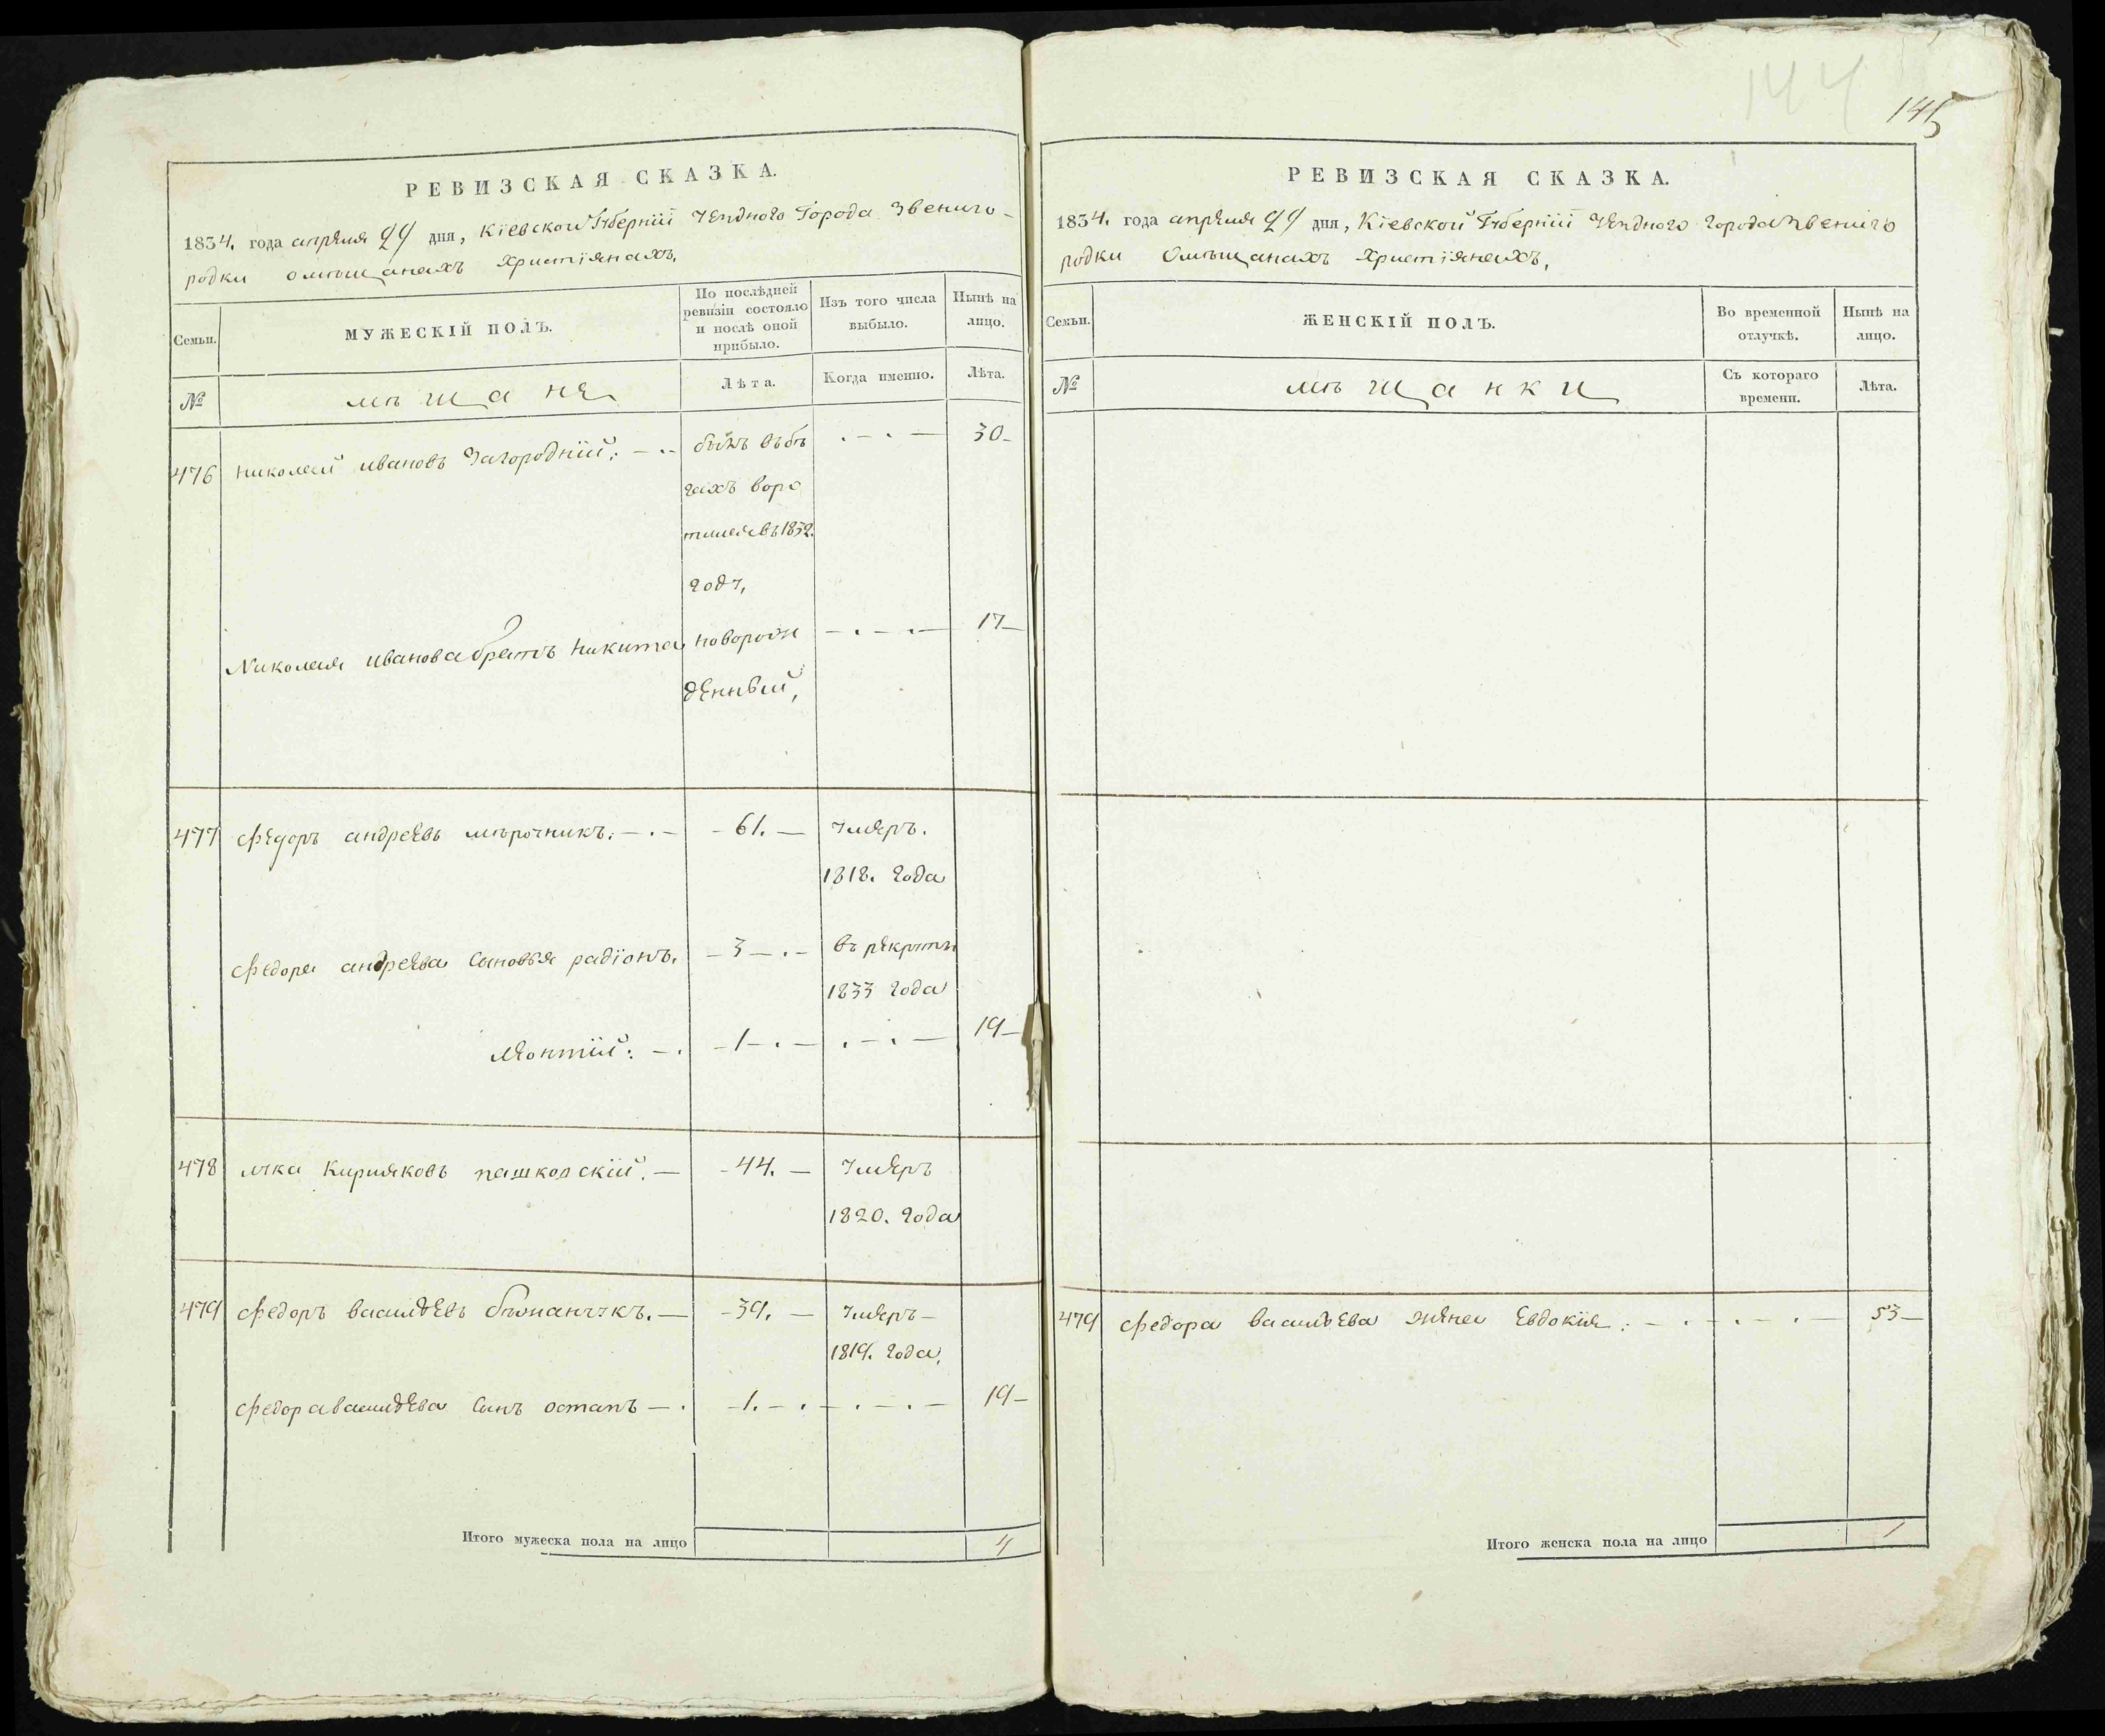 144
145
РЕВИЗСКАЯ СКАЗКА.
1834. года апреля 29 дня, Кіевской Губерніи Уездного Города Звениго-
родки о мѣщанахъ христіянахъ,
Семьи.
МУЖЕСКІЙ ПОЛЪ.
По послѣдней ревизіи состояло и послѣ оной прибыло.
Изъ того числа выбыло.
Нынѣ на лицо.
№
мѣщане
Лѣта.
Когда именно.
Лѣта.
476 Николай Ивановъ Загородній: былъ въ бѣ 30
гахъ воро
тился въ 1832.
году,
Николая Иванова братъ Никита новорож 17
денный,
477 Федоръ андреевъ мѣрочникъ. 61. умеръ.
1818. года
Федора андреева сыновья радіонъ. 3 въ рекруты
1833 года
Леонтій: 1 19
478 лука Кирияковъ пашковскій. 44. умеръ
1820. года
479 Федоръ васильевъ 39. умеръ
1819. года,
Федора васильева сынъ остапъ 1. 19
Итого мужеска пола на лицо 4
РЕВИЗСКАЯ СКАЗКА.
1834. года апреля 29 дня, Кіевской Губерніи Уездного города Звениго
родки о мѣщанахъ христіянахъ,
Семьи.
ЖЕНСКІЙ ПОЛЪ.
Во временной отлучкѣ.
Нынѣ на лицо.
№
мѣщанки
Съ котораго времени.
Лѣта.
479 Федора васильева жена Евдокія: 53
Итого женска пола на лицо 1